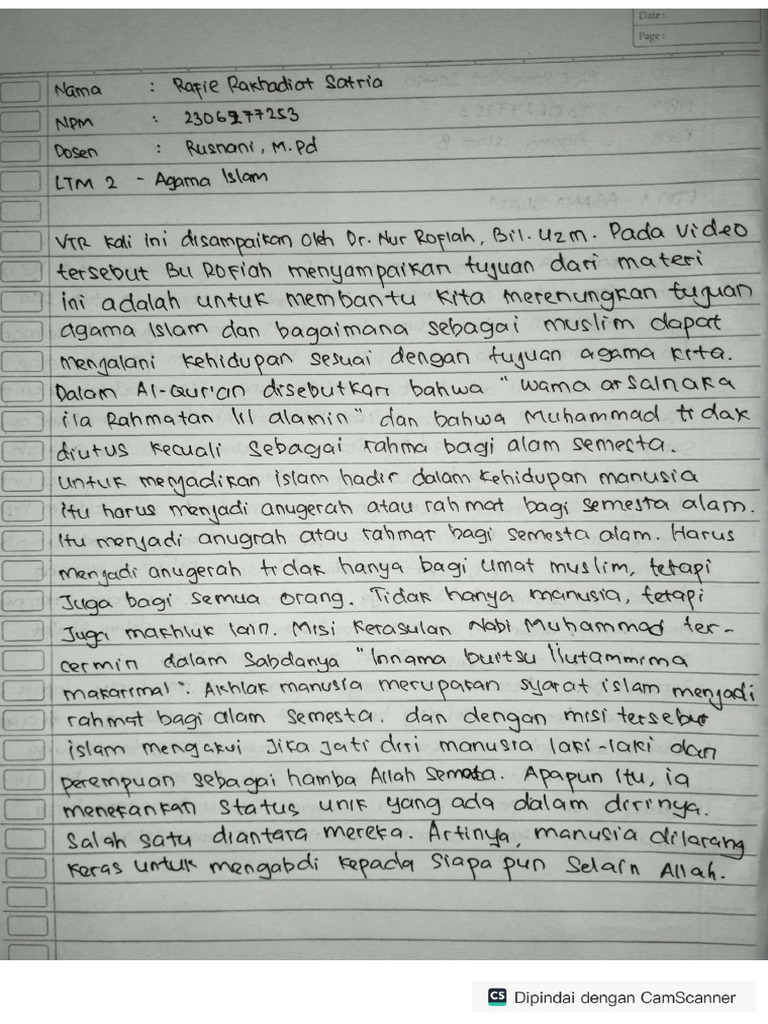 Date:
Page:
Nama : Rafie Rakhadiat Satria
NPM : 2306277253
Dosen : Rusnani, M.Pd
LTM 2 - Agama Islam
VTR kali ini disampaikan oleh Dr. Nur Rofiah, Bil. Uzm. Pada video
tersebut Bu Rofiah menyampaikan tujuan dari materi
ini adalah untuk membantu kita merenungkan tujuan
agama Islam dan bagaimana sebagai muslim dapat
menjalani kehidupan sesuai dengan tujuan agama kita.
Dalam Al-Qur'an disebutkan bahwa "wama arsalnaka
ila Rahmatan lil alamin" dan bahwa Muhammad tidak
diutus kecuali sebagai rahma bagi alam semesta.
Untuk menjadikan islam hadir dalam kehidupan manusia
itu harus menjadi anugerah atau rahmat bagi semesta alam.
Itu menjadi anugrah atau rahmat bagi semesta alam. Harus
menjadi anugerah tidak hanya bagi umat muslim, tetapi
Juga bagi semua orang. Tidak hanya manusia, tetapi
Juga makhluk lain. Misi Kerasulan Nabi Muhammad ter-
cermin dalam Sabdanya "Innama buitsu liutammima
makarimal". Akhlak manusia merupakan syarat islam menjadi
rahmat bagi alam semesta. dan dengan misi tersebut
islam mengakui Jika Jati diri manusia laki-laki dan
perempuan sebagai hamba Allah Semata. Apapun Itu, ia
menekankan Status unik yang ada dalam dirinya.
Salah satu diantara mereka. Artinya, manusia dilarang
keras untuk mengabdi kepada Siapa pun Selain Allah.
CS Dipindai dengan CamScanner